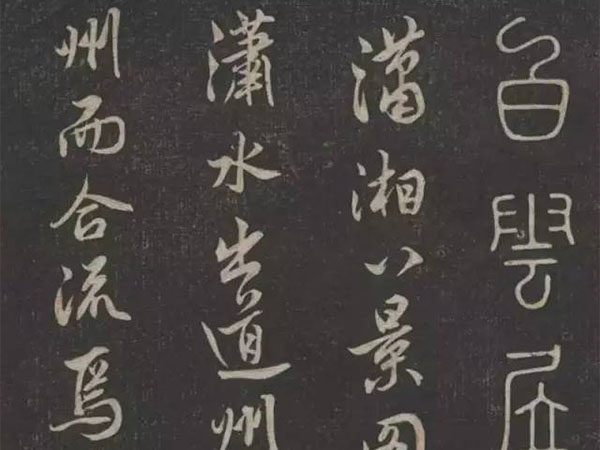 白雲居
瀟湘八景圖
瀟水出道州
州而合流焉